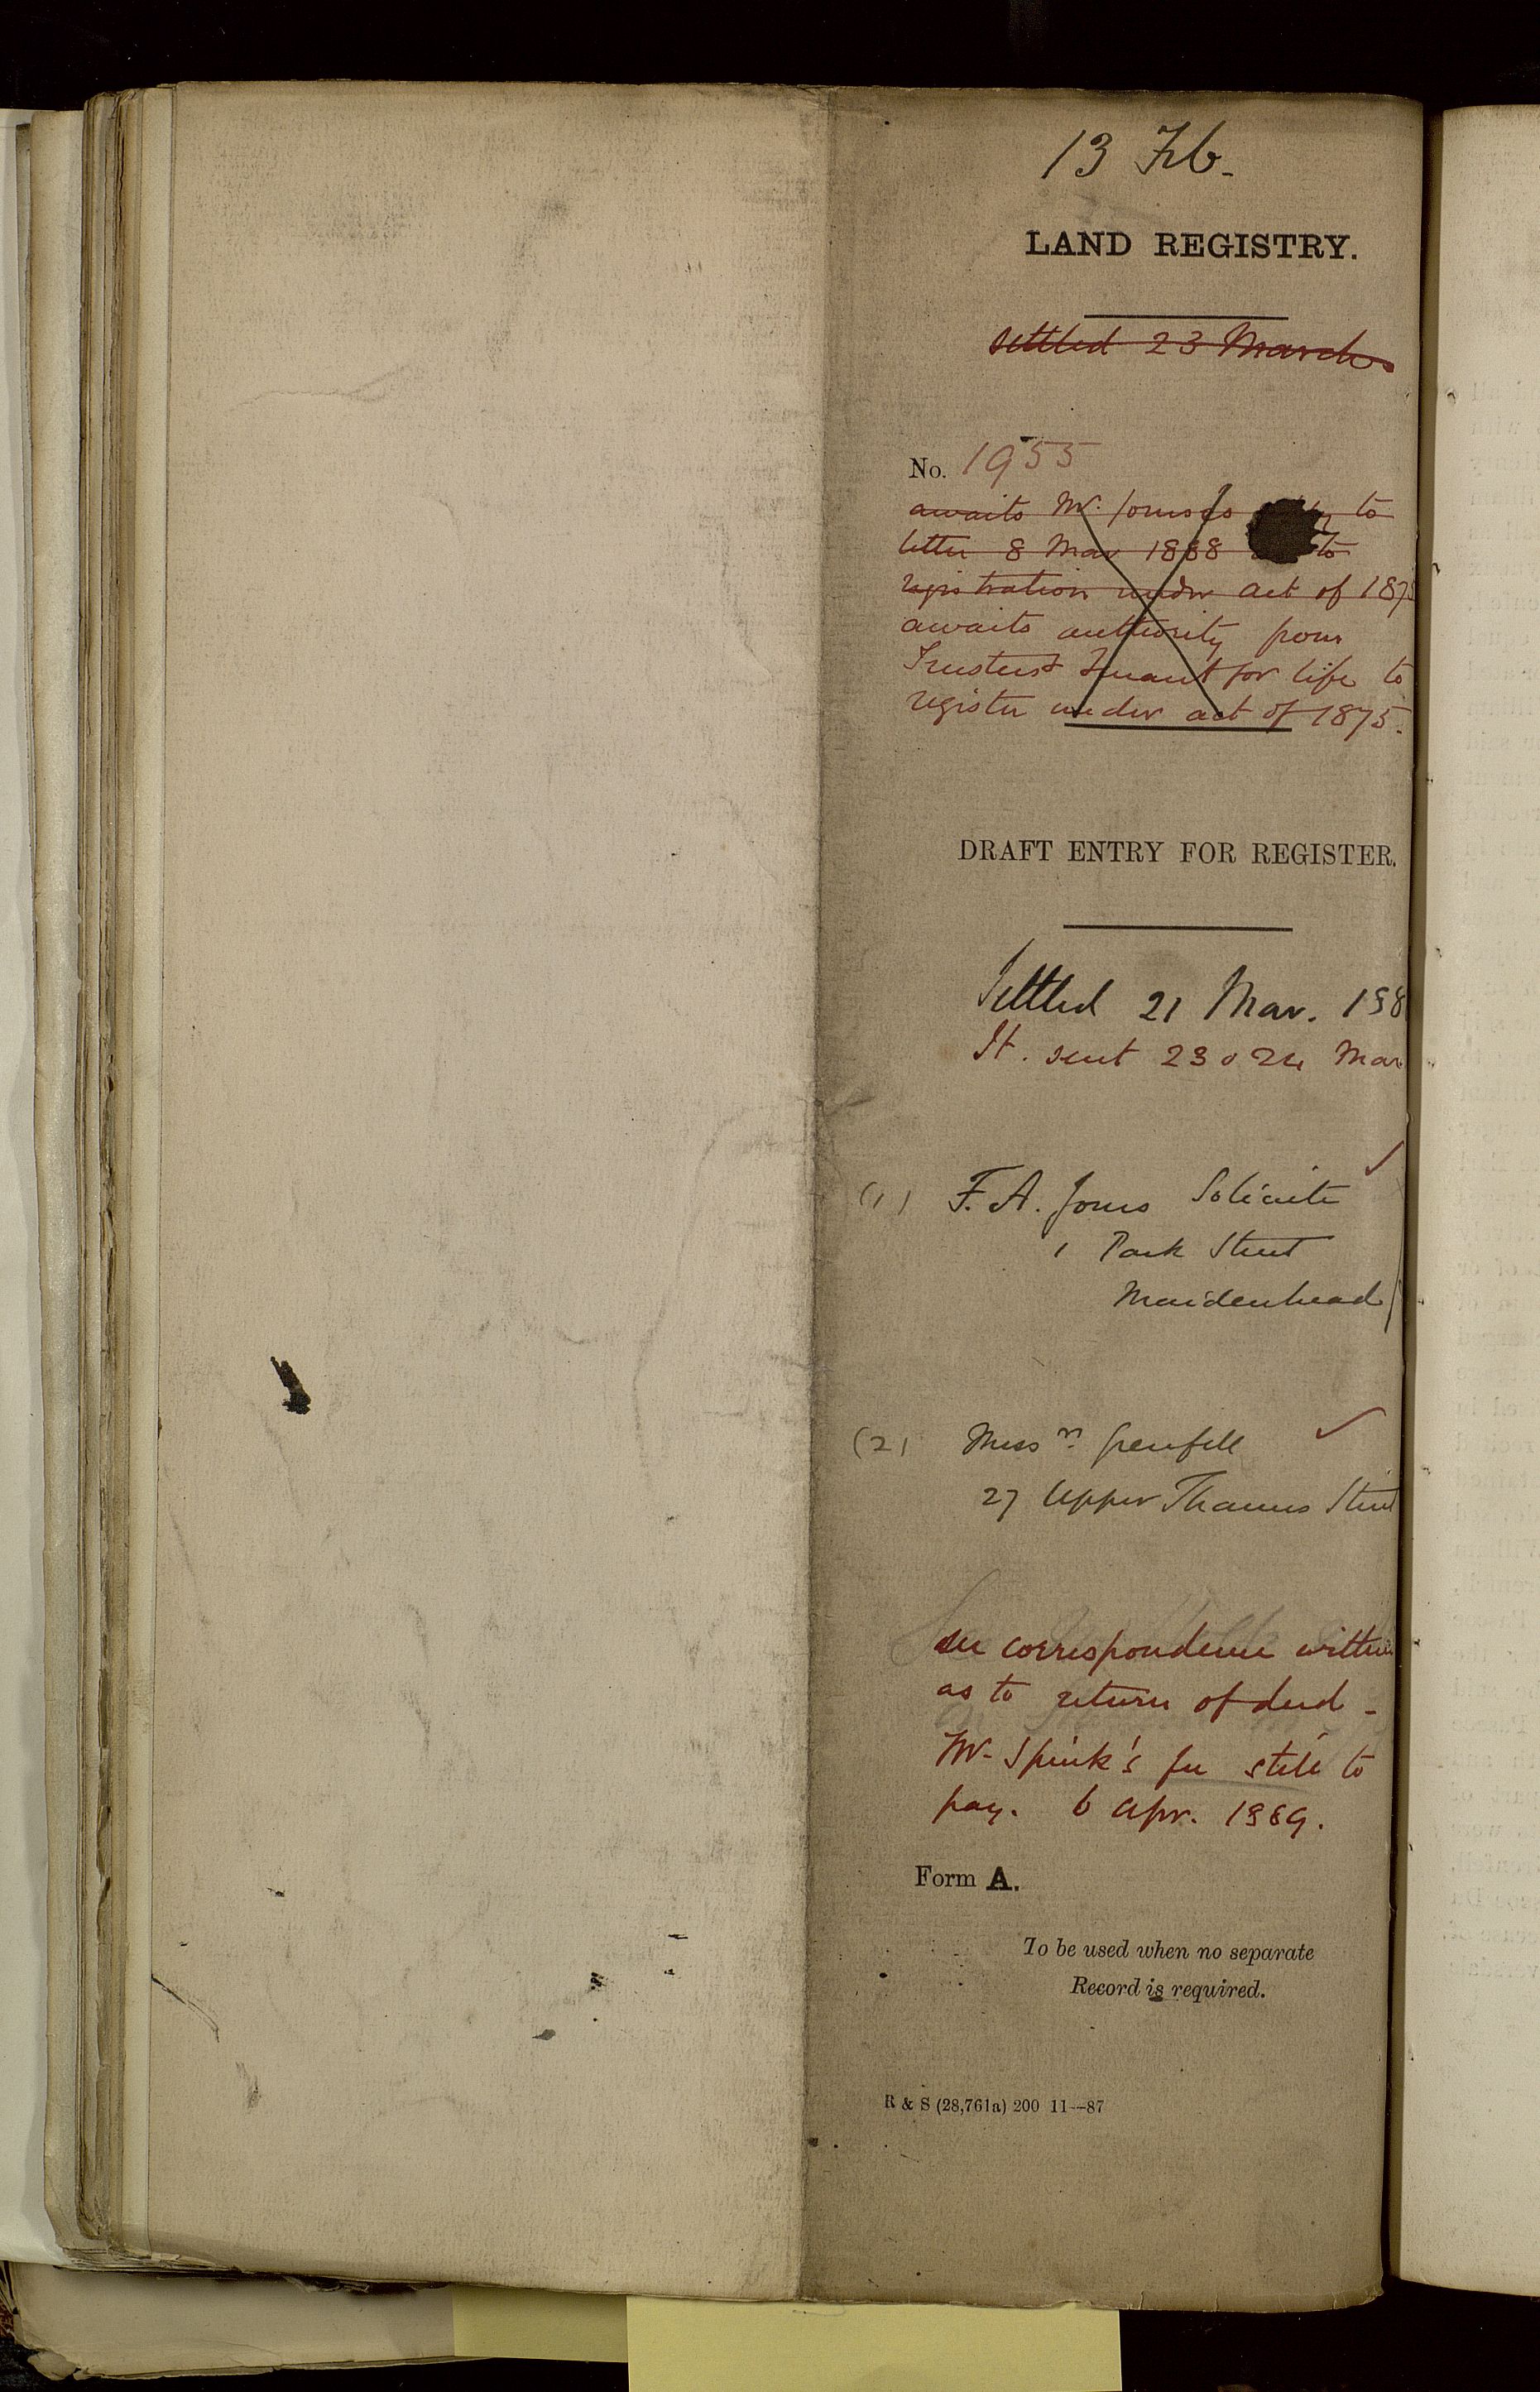 13 Feb.
LAND REGISTRY.
settled 23 March
No. 1955
awaits Mr. Jones's to
letter 8 Mar 1888 to
registration under act of 187
awaits authority from
Trustees & Tenant for life to
register under act of 1875.
DRAFT ENTRY FOR REGISTER.
Settled 21 Mar. 188
sent 23 & 24 Mar
(1) F. A. Jones Solicitor
1 Park Street
Maidenhead
(2) Messrs. Grenfell
27 Upper Thames Street
see correspondence within
as to return of deed -
Mr Spink's fee still to
pay. 6 Apr. 1889.
Form A.
To be used when no separate
Record is required.
R & S (28,761a) 200 11--87